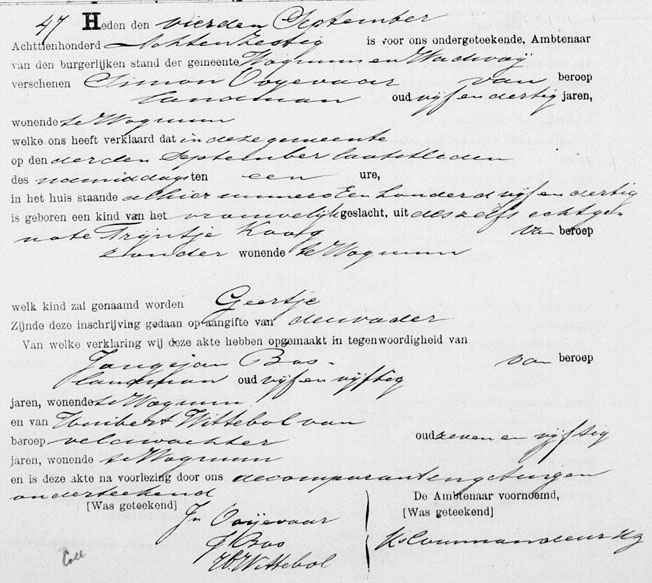 47 Heden den vierden September
Achttienhonderd Achtenzestig is voor ons ondergeteekende, Ambtenaar
van den burgerlijken stand der gemeente Wognum en Wadway
verschenen Simon Ooyevaar van beroep
landman oud vijf en dertig jaren,
wonende te Wognum
welke ons heeft verklaard dat in deze gemeente
op den derden September laatstleden
des namiddags ten een ure,
in het huis staande alhier numero Een honderd vijf en dertig
is geboren een kind van het vrouwelijk geslacht, uit deszelfs echtge-
note Trijntje Koog van beroep
zonder wonende te Wognum
welk kind zal genaamd worden Geertje
Zijnde deze inschrijving gedaan op aangifte van den vader
Van welke verklaring wij deze akte hebben opgemaakt in tegenwoordigheid van
Jongejan Bos van beroep
landman oud vijf en vijftig
jaren, wonende te Wognum
en van Huibert Wittebol van
beroep veldwachter oud zeven en vijftig
jaren, wonende te Wognum
en is deze akte na voorlezing door ons de comparant en getuigen
onderteekend
[Was geteekend] De Ambtenaar voornoemd,
[Was geteekend]
Sn Ooijevaar
J Bos
H. Wittebol
Ks Commandeur
Coll